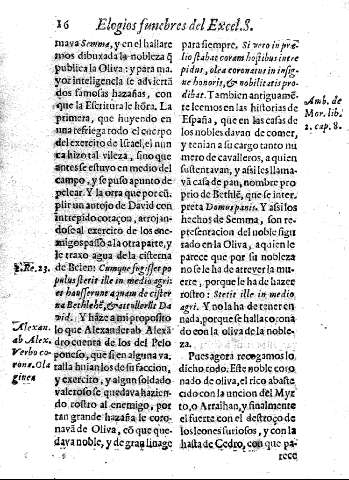 16 Elogios funebres del Excel. S.
mava Semma, y en el hallare
mos dibuxada la nobleza q̃
publica la Oliva: y para ma
yor inteligencia se adviertã
dos famosas hazañas, con
que la Escritura le hõra. La
primera, que huyendo en
una refriega todo el cuerpo
del exercito de Israel, el nun
ca hizo tal vileza, sino que
antes se estuvo en medio del
campo, y se puso apunto de
pelear. Y la otra que por cũ-
plir un antojo de David con
intrepido coraçon, arrojan-
dose al exercito de los ene-
migos passò a la otra parte, y
le traxo agua de la cisterna
de Belen: Cumque fugisset po
pulus stetit ille in medio agri:
et hausserunt aquam de cister
na Bethlehẽ, & attullerũt Da
vid. Y haze a mi proposito
lo que Alexander ab Alexã
dro cuenta de los del Pelo
poneso, que si en alguna va
talla huian los de su faccion,
y exercito, y algun soldado
valeroso se quedava hazien-
do rostro al enemigo, por
tan grande hazaña le coro-
navã de Oliva, cõ que que-
dava noble, y de gran linage
2. Re. 23.
Alexan.
ab Alex.
Verbo co-
rona. Ola
ginea
para siempre. Si vero in præ-
lio stabat coram hostibus intre
pidus, olea coronatus in insig-
ne honoris, & nobilitatis pro-
dibat. Tambien antiguamẽ-
te leemos en las historias de
España, que en las casas de
los nobles davan de comer,
y tenian a su cargo tanto nu
mero de cavalleros, a quien
sustentavan, y assi les llama-
và casa de pan, nombre pro
prio de Bethlẽ, que se inter-
preta Domus panis. Y assi los
hechos de Semma, son re-
presentacion del noble figu
rado en la Oliva, a quien le
parece que por su nobleza
no se le ha de atreyer la mu-
erte, porque le ha de hazer
rostro: Stetit ille in medio
agri. Y no la ha de tener en
nada, porque se halla corona
do con la oliva de la noble-
za.
Pues agora recojamos lo
dicho todo. Este noble coro
nado de oliva, el rico abaste
cido con la uncion del Myr
to, o Arraihan, y finalmente
el fuerte con el destroço de
los leones furiosos, y con la
hasta de Cedro, con que pa-
rece
Amb. de
Mor. lib.
2. cap. 8.